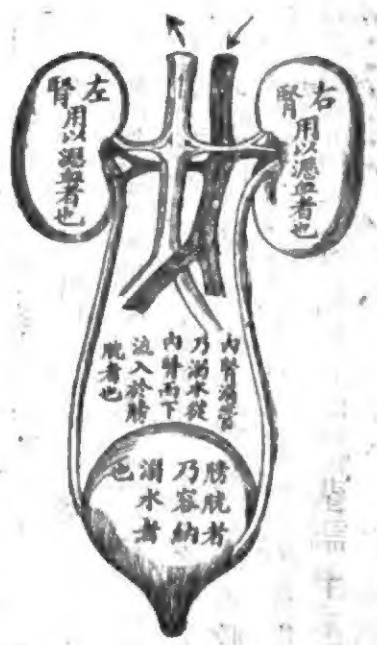 右腎
用以濾血者也
左腎
用以濾血者也
內腎溺管
乃溺水從
內腎而下
流入於膀
胱者也
膀胱者
乃容納
溺水者
也